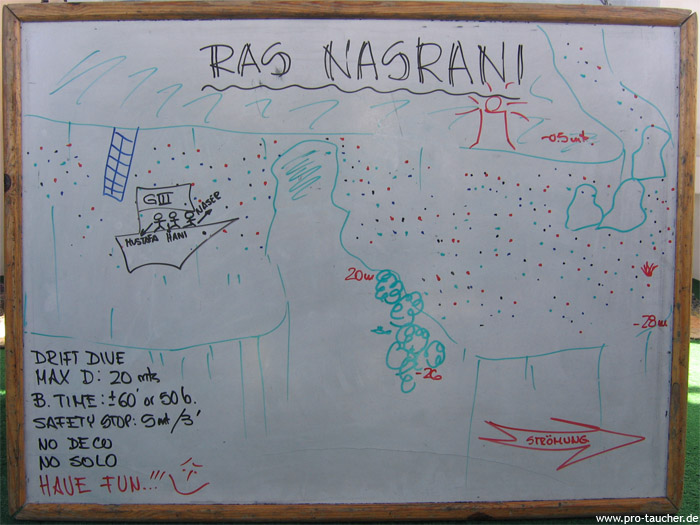 RAS NASRANI
~05 mt.
GIII
NASER
MUSTAFA HANI
20m
-28m
-26
DRIFT DIVE
MAX D: 20 mts
B. TIME: ±60' or 50 b.
SAFETY STOP: 5mt/3'
NO DECO
NO SOLO
HAVE FUN...!!!
STRÖMUNG
www.pro-taucher.de